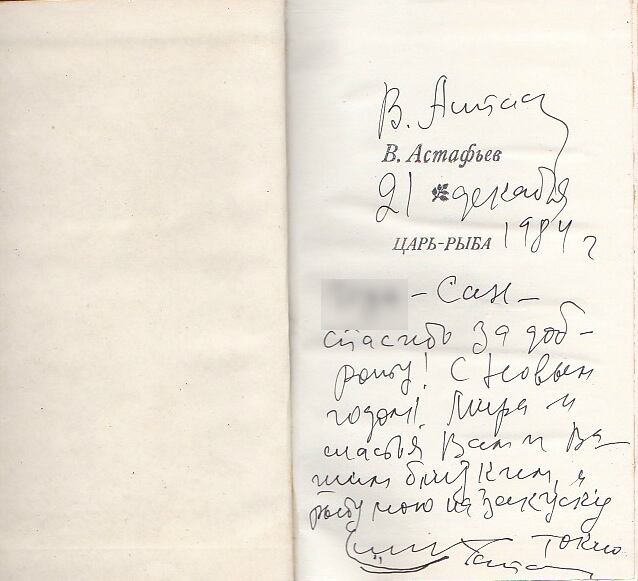 В. Астаф
В. Астафьев
21 декабря
ЦАРЬ-РЫБА 1984 г
- Сан -
спасибо за доб-
роту! С Новым
годом! Мира и
счастья Вам и Ва-
шим близким, а
рыбу мою на закуску
Токио